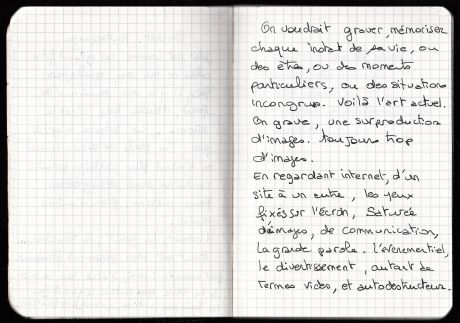 On voudrait graver, mémoriser
chaque instat de sa vie, ou
des etres, ou des moments
particuliers, ou des situations
incongrues. Voilà l'art actuel.
On grave, une surproduction
d'images. toujours trop
d'images.
En regardant internet, d'un
site à un autre, les yeux
fixés sur l'écran, Saturée
d'images, de communication,
La grande parole. l'évenementiel,
le divertissement, autant de
termes video, et autodestructeur.